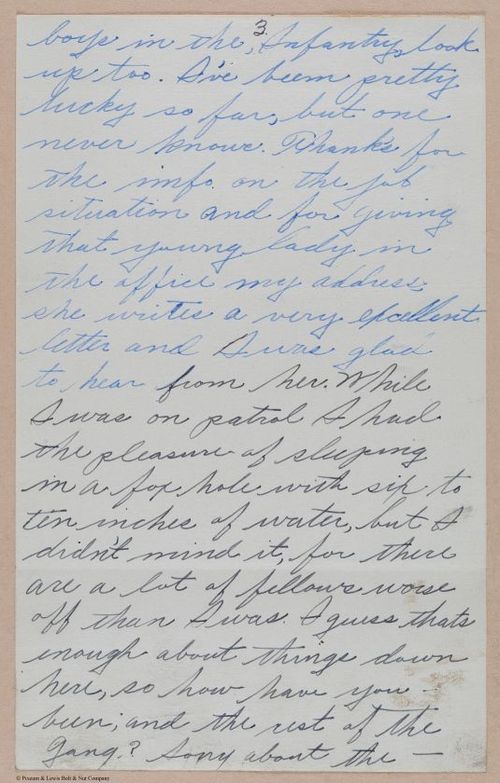 3.
boys in the, Infantry, look
up too. I've been pretty
lucky so far, but one
never knows. Thanks for
the info. on the job
situation and for giving
that young lady in
the office my address,
she writes a very excellent
letter and I was glad
to hear from her. While
I was on patrol I had
the pleasure of sleeping
in a fox hole with six to
ten inches of water, but I
didn't mind it, for there
are a lot of fellows worse
off than I was. I guess thats
enough about things down
here, so how have you -
been, and the rest of the
Gang.? Sorry about the —
© Pearson & Lewis Bolt & Nut Company